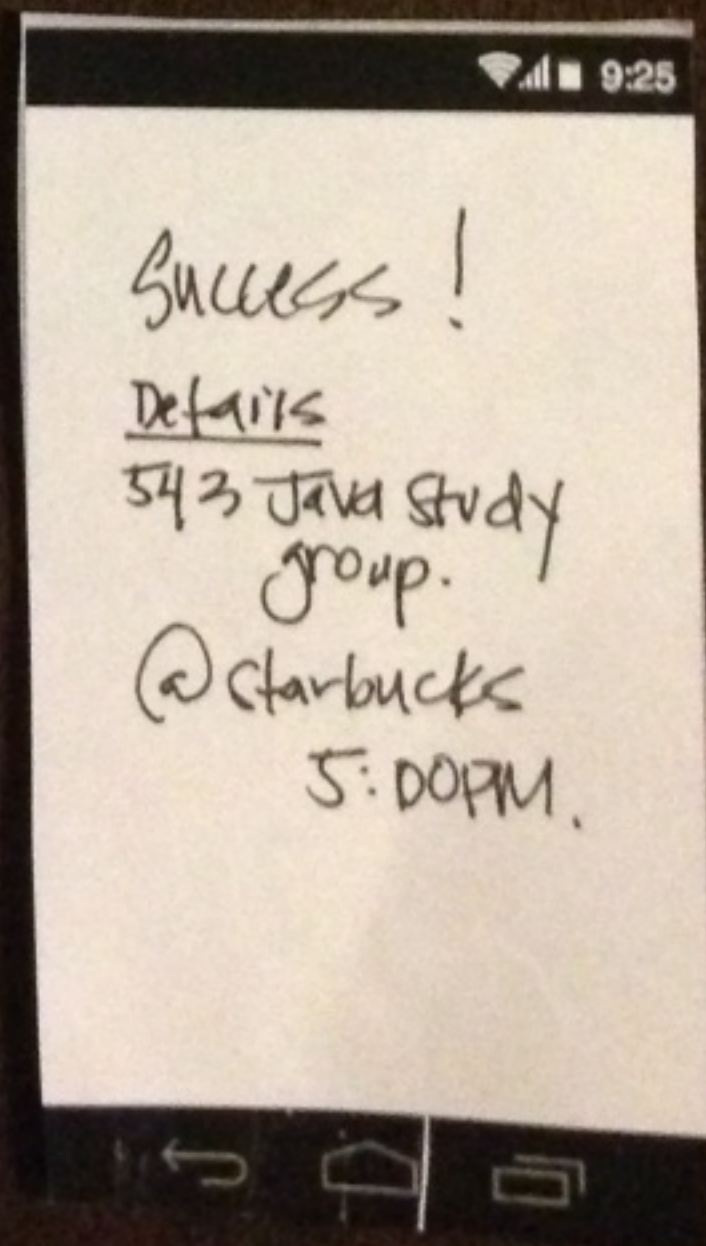 9:25
Success!
Details
543 Java Study
group.
@starbucks
5:00PM.